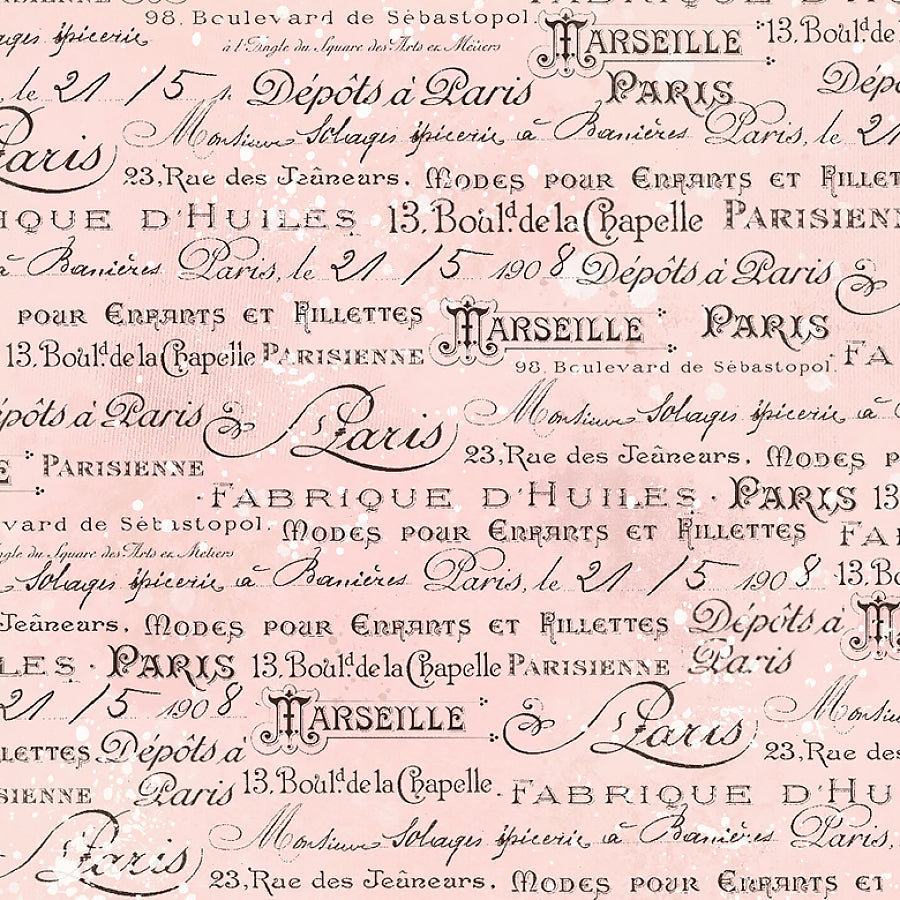 98. Boulevard de Sébastopol.
épicerie
à l'Angle du Square des Arts et Métiers
MARSEILLE
13, Boul.d de
le 21/5
Dépôts à Paris
PARIS
Monsieur Solages épicerie à Banières Paris, le 21
Paris
23, Rue des Jeûneurs. MODES POUR ENFANTS ET FILLETTES
IQUE D'HUILES 13, Boul.d de la Chapelle PARISIENN
à Banières Paris, le 21/5 1908 Dépôts à Paris
POUR ENFANTS ET FILLETTES MARSEILLE PARIS
13, Boul.d de la Chapelle PARISIENNE
98. Boulevard de Sébastopol. FA
pôts à Paris Paris Monsieur Solages épicerie à
PARISIENNE
23, Rue des Jeûneurs. MODES P
· FABRIQUE D'HUILES · PARIS 13
vard de Sébastopol. MODES POUR ENFANTS ET FILLETTES FA
ngle du Square des Arts et Métiers
Solages épicerie à Banières Paris, le 21/5 1908 13, Bo
Jeûneurs. MODES POUR ENFANTS ET FILLETTES Dépôts à Paris
LES · PARIS 13, Boul.d de la Chapelle PARISIENNE
21/5 1908 MARSEILLE Paris Monsieur
LETTES Dépôts à Paris
23, Rue des
SIENNE 13, Boul.d de la Chapelle. · FABRIQUE D'HU
Paris Monsieur Solages épicerie à Banières Paris,
23, Rue des Jeûneurs. MODES POUR ENFANTS ET